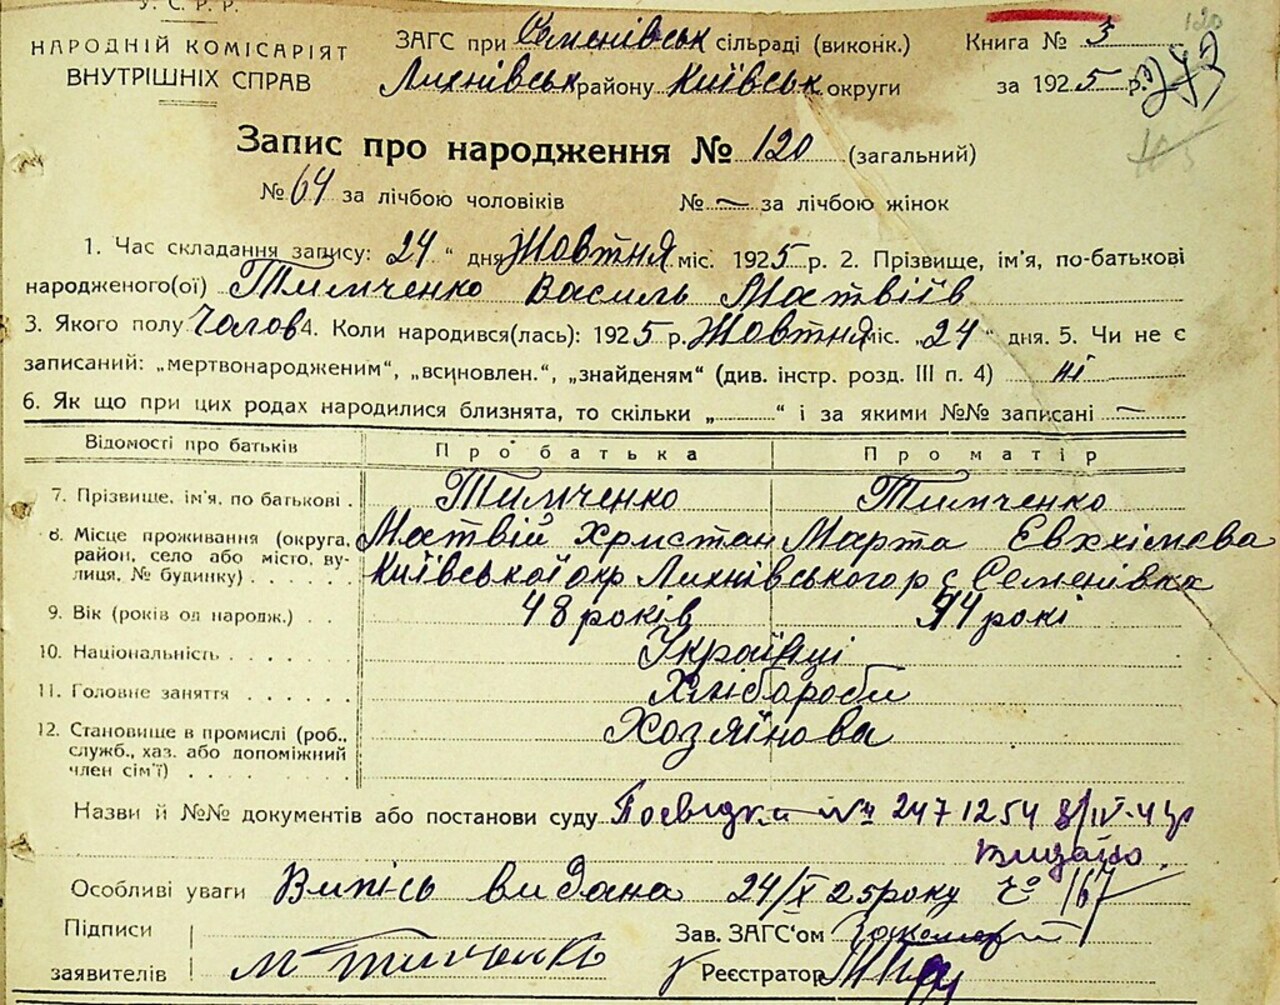 У. С. Р. Р.
НАРОДНІЙ КОМІСАРІЯТ
ВНУТРІШНІХ СПРАВ
ЗАГС при Семенівськ сільраді (виконк.)
Лихнівськ району Київськ округи
Книга № 3
за 1925 р.
120
Запис про народження № 120 (загальний)
№ 64 за лічбою чоловіків № — за лічбою жінок
1. Час складання запису: 24 " дня Жовтня міс. 1925 р. 2. Прізвище, ім'я, по-батькові
народженого(ої) Тимченко Василь Матвіїв
3. Якого полу Чолов 4. Коли народився(лась): 1925 р. Жовтня міс. „24" дня. 5. Чи не є
записаний: „мертвонародженим", „всиновлен.", „знайденям" (див. інстр. розд. III п. 4) ні
6. Як що при цих родах народилися близнята, то скільки „ " і за якими №№ записані —
Відомості про батьків Про батька Про матір
7. Прізвище, ім'я, по батькові . Тимченко Тимченко
Матвій Христан Марта Евхімова
8. Місце проживання (округа, район, село або місто, вулиця, № будинку) . . . . . Київської окр Лихнівського р с Семенівка
9. Вік (років од народж.) . . 48 років 44 рокі
10. Національність . . . . . . Українці
11. Головне заняття . . . . . Хлібароби
12. Становище в промислі (роб., служб., хаз. або допоміжний член сім'ї) . . . . . Хозяїнова
Назви й №№ документів або постанови суду Посвідка № 247 1254 8/IV-41р
видано.
Особливі уваги Випісь видана 24/X 25 року № 167
Підписи
заявителів М Тимченко
Зав. ЗАГС'ом
Реєстратор